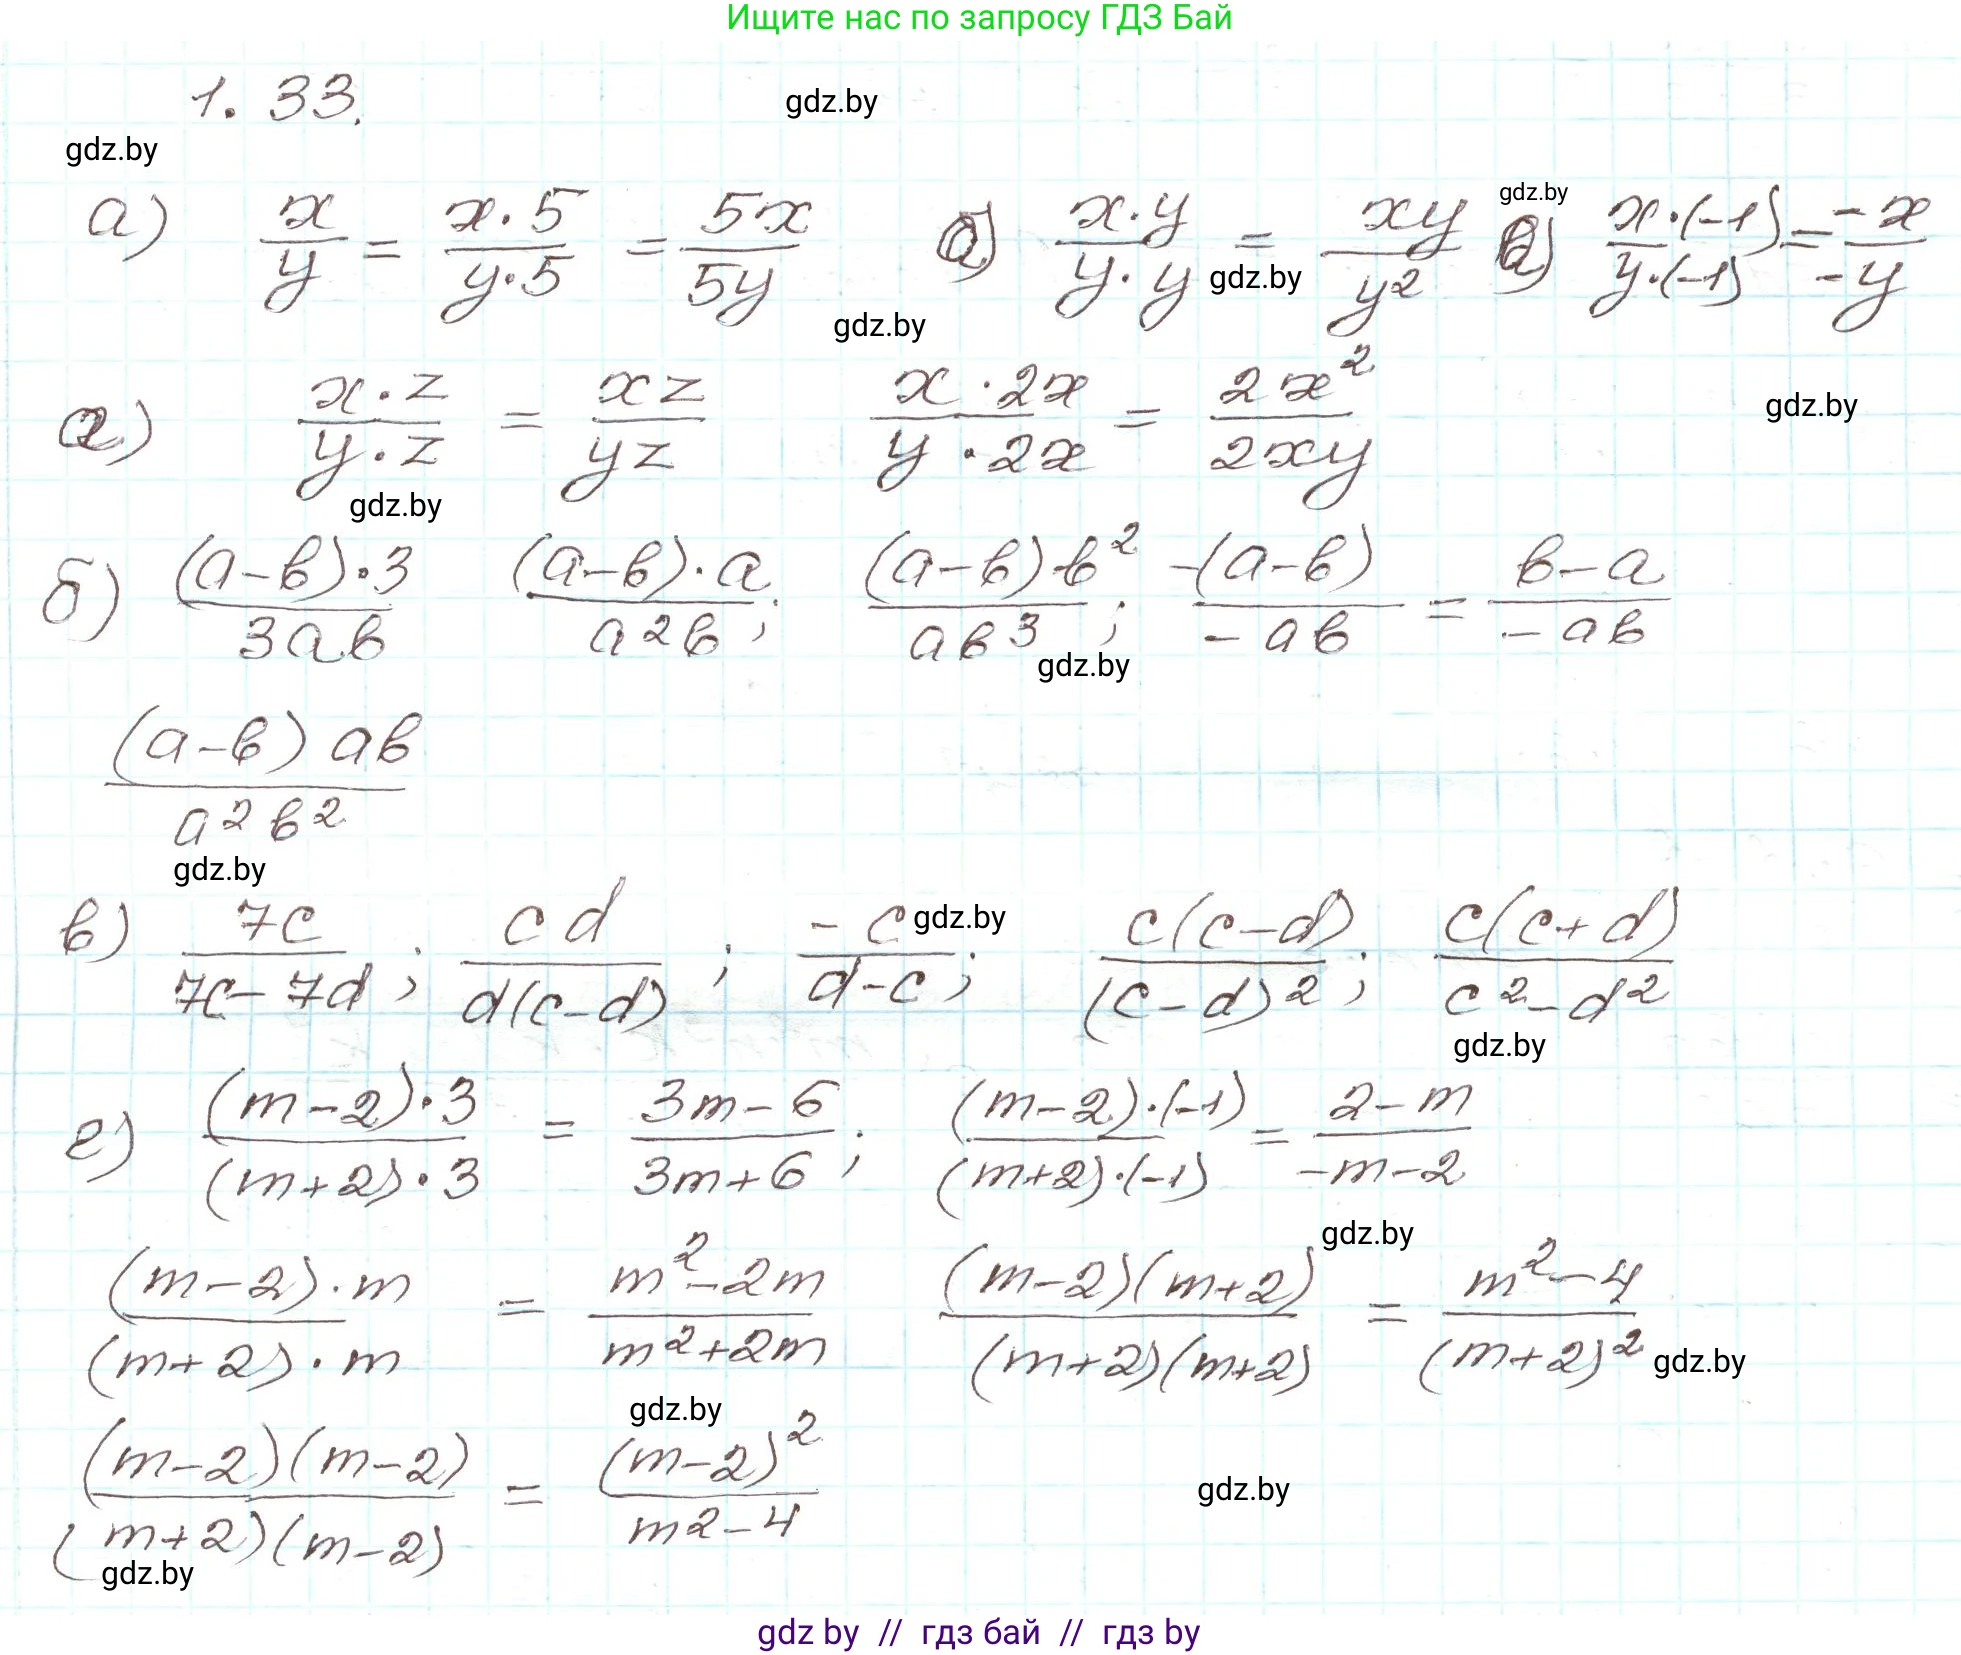 Ищите нас по запросу ГДЗ Бай
1. 33. gdz.by
gdz.by
а) x/y = x·5/y·5 = 5x/5y б) x·y/y·y = xy/y² gdz.by в) x·(-1)/y·(-1) = -x/-y
gdz.by
gdz.by
x·z/y·z = xz/yz x·2x/y·2x = 2x²/2xy gdz.by
gdz.by
б) (a-b)·3/3ab (a-b)·a/a²b; (a-b)·b²/ab³; -(a-b)/-ab = b-a/-ab
gdz.by
(a-b)ab/a²b²
gdz.by
в) 7c/7c-7d; cd/d(c-d); -c/d-c; gdz.by c(c-d)/(c-d)²; c(c+d)/c²-d²
gdz.by
г) (m-2)·3/(m+2)·3 = 3m-6/3m+6; (m-2)·(-1)/(m+2)·(-1) = 2-m/-m-2
gdz.by
(m-2)·m/(m+2)·m = m²-2m/m²+2m (m-2)(m+2)/(m+2)(m+2) = m²-4/(m+2)² gdz.by
gdz.by
(m-2)(m-2)/(m+2)(m-2) = (m-2)²/m²-4 gdz.by
gdz.by
gdz by // гдз бай // гдз by